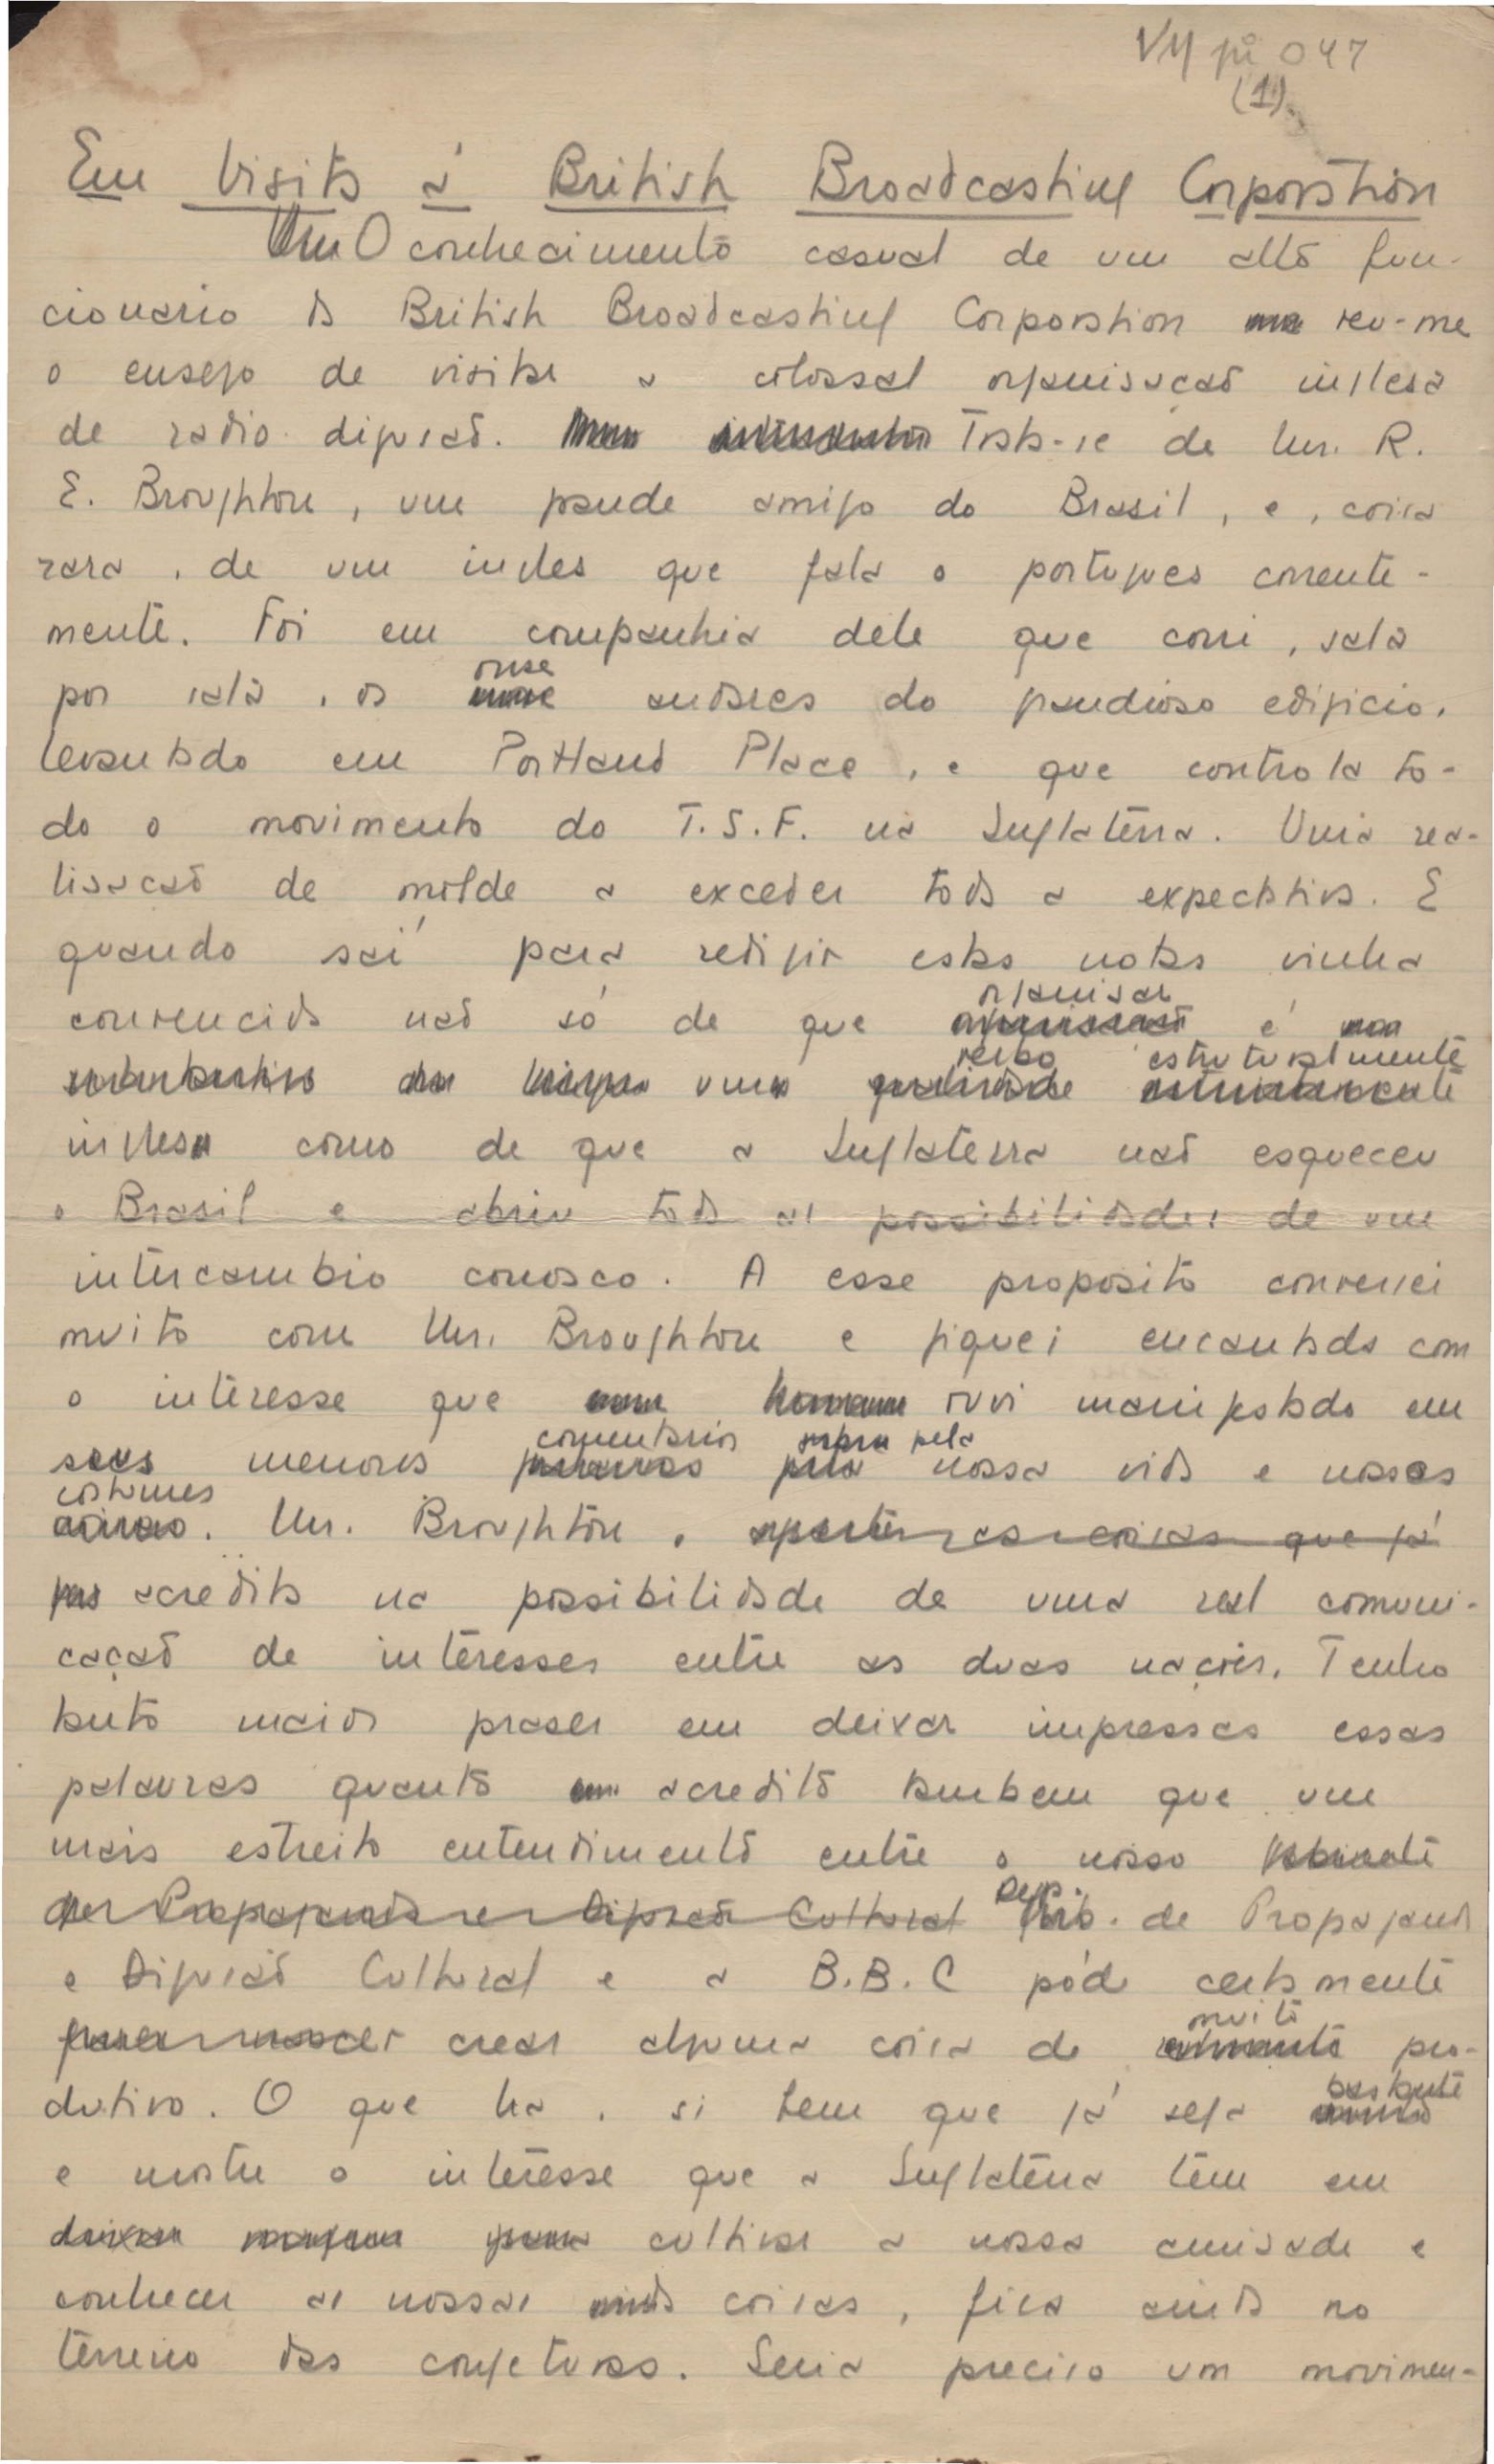 VM pi 047
(1)
Em visita á British Broadcasting Corporation
O conhecimento casual de um alto fun-
cionario da British Broadcasting Corporation deu-me
o ensejo de visitar a colossal organisação inglesa
de radio difusão. Trata-se de Mr. R.
E. Broughton, um grande amigo do Brasil, e, coisa
rara, de um ingles que fala o portugues corrente-
mente. Foi em companhia dele que corri, sala
por sala, os onse andares do grandioso edificio,
levantado em Portland Place, e que controla to-
do o movimento do T.S.F. na Inglaterra. Uma rea-
lisação de molde a exceder toda a expectativa. E
quando saí para redigir estas notas vinha
convencido não só de que organisar é
um verbo estruturalmente
ingles como de que a Inglaterra não esqueceu
o Brasil e abriu toda as possibilidades de um
intercambio conosco. A esse proposito conversei
muito com Mr. Broughton e fiquei encantado com
o interesse que ouvi manifestado em
seus menores comentarios pela nossa vida e nossos
costumes. Mr. Broughton, apartir as coisas que já
acredita na possibilidade de uma real comuni-
cação de interesses entre as duas nações. Tenho
tanto maior praser em deixar impressas essas
palavras quanto acredito tambem que um
mais estreito entendimento entre o nosso
de Propaganda e Difusão Cultural Dep. de Propaganda
e Difusão Cultural e a B.B.C póde certamente
fazer nascer crear alguma coisa de muito pro-
dutivo. O que ha, si bem que já seja bastante
e mostre o interesse que a Inglaterra tem em
cultivar a nossa amisade e
conhecer as nossas coisas, fica ainda no
terreno das conjeturas. Seria preciso um movimen-